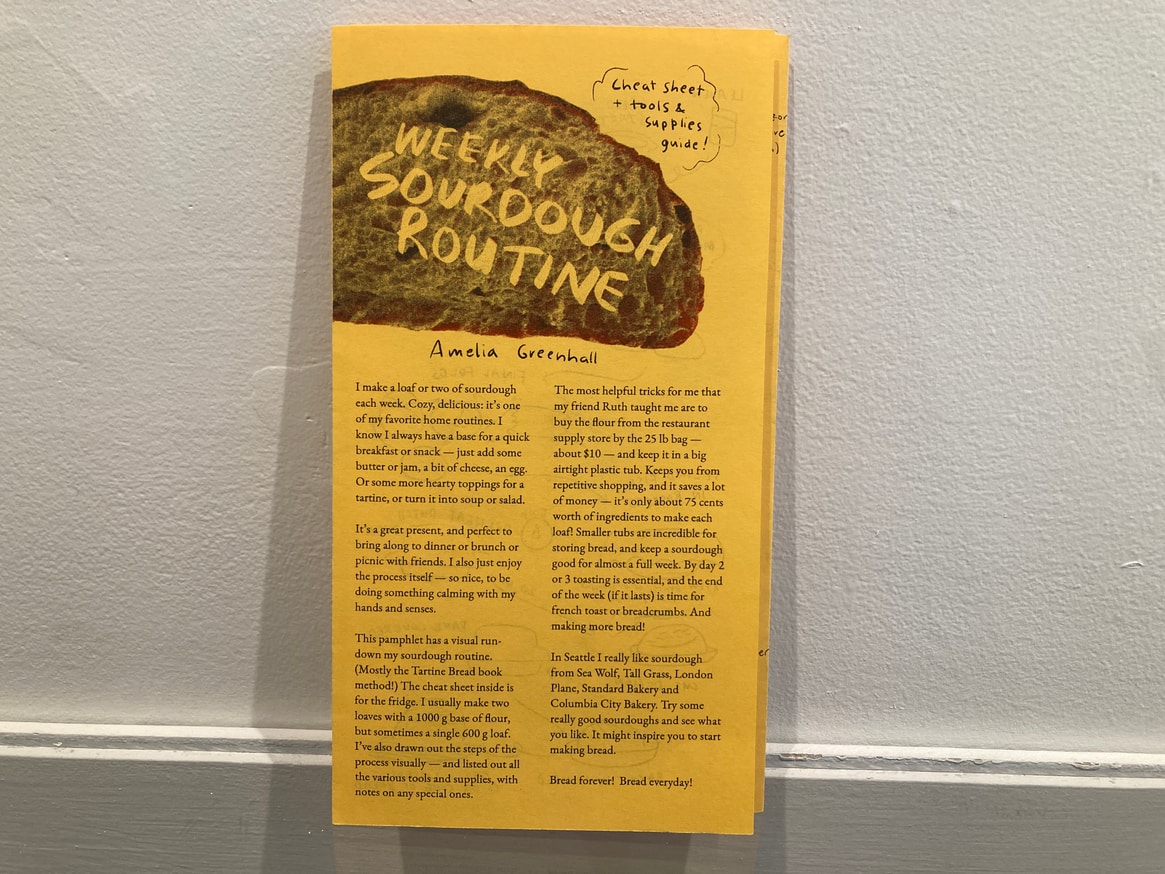 Cheat sheet
+ tools &
supplies
guide!
WEEKLY
SOURDOUGH
ROUTINE
Amelia Greenhall
I make a loaf or two of sourdough
each week. Cozy, delicious: it's one
of my favorite home routines. I
know I always have a base for a quick
breakfast or snack — just add some
butter or jam, a bit of cheese, an egg.
Or some more hearty toppings for a
tartine, or turn it into soup or salad.
It's a great present, and perfect to
bring along to dinner or brunch or
picnic with friends. I also just enjoy
the process itself — so nice, to be
doing something calming with my
hands and senses.
This pamphlet has a visual run-
down my sourdough routine.
(Mostly the Tartine Bread book
method!) The cheat sheet inside is
for the fridge. I usually make two
loaves with a 1000 g base of flour,
but sometimes a single 600 g loaf.
I've also drawn out the steps of the
process visually — and listed out all
the various tools and supplies, with
notes on any special ones.
The most helpful tricks for me that
my friend Ruth taught me are to
buy the flour from the restaurant
supply store by the 25 lb bag —
about $10 — and keep it in a big
airtight plastic tub. Keeps you from
repetitive shopping, and it saves a lot
of money — it's only about 75 cents
worth of ingredients to make each
loaf! Smaller tubs are incredible for
storing bread, and keep a sourdough
good for almost a full week. By day 2
or 3 toasting is essential, and the end
of the week (if it lasts) is time for
french toast or breadcrumbs. And
making more bread!
In Seattle I really like sourdough
from Sea Wolf, Tall Grass, London
Plane, Standard Bakery and
Columbia City Bakery. Try some
really good sourdoughs and see what
you like. It might inspire you to start
making bread.
Bread forever! Bread everyday!